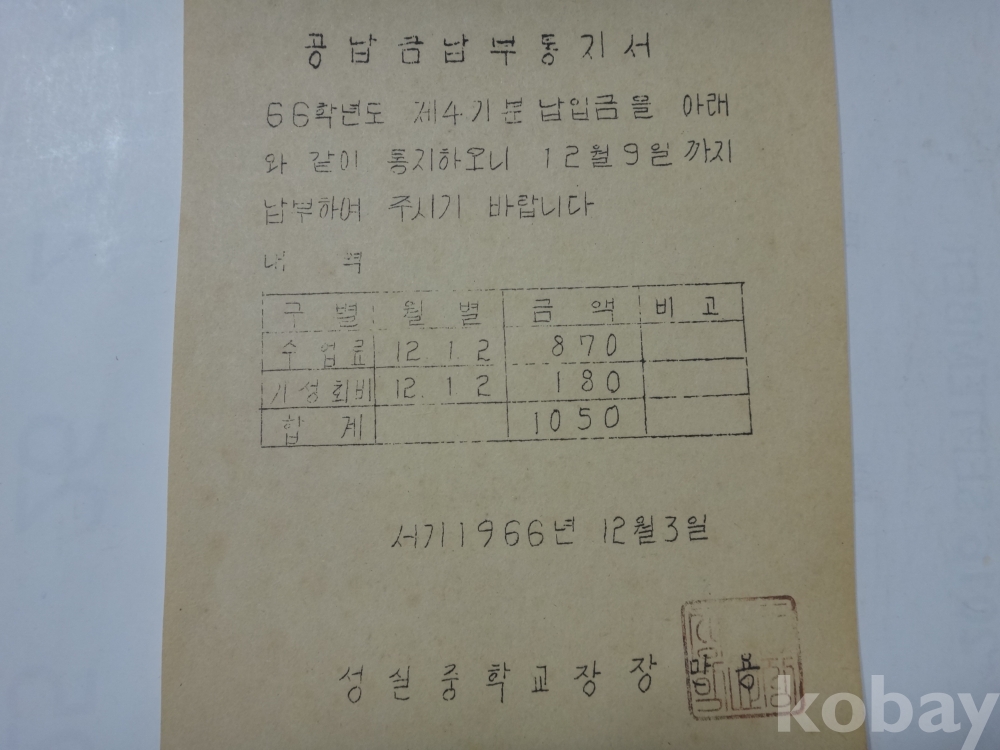 공납금납부통지서
66학년도 제4기분 납입금을 아래
와 같이 통지하오니 12월9일 까지
납부하여 주시기 바랍니다
내 역
구별 월별 금액 비고
수업료 12.1.2 870
기성회비 12.1.2 180
합계 1050
서기1966년 12월3일
성실중학교장 장
kobay